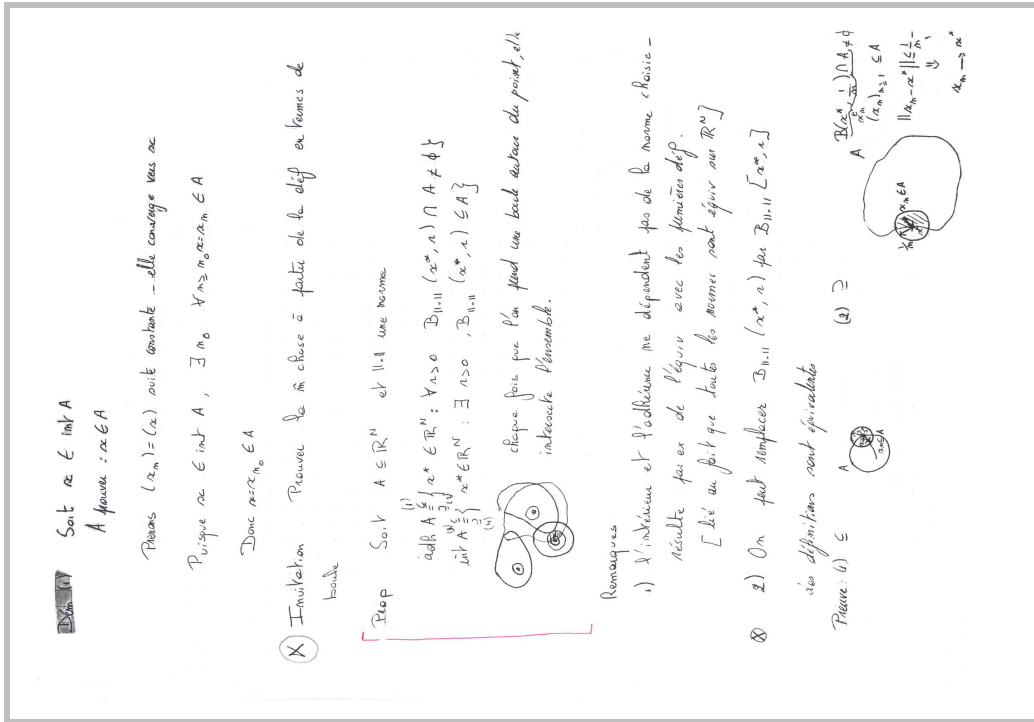 Dém (1)
Soit x ∈ int A
A prouver : x ∈ A
Prenons (x_m) = (x) suite constante _ elle converge vers x
Puisque x ∈ int A , ∃ m_0 ∀ m ≥ m_0 x = x_m ∈ A
Donc x = x_{m_0} ∈ A
Invitation Prouver la m̂ chose à partir de la déf en termes de
boule
Prop Soit A ⊆ ℝ^N et ||.|| une norme
adh A (1) ⊆ = ⊇ (2) { x* ∈ ℝ^N : ∀ r > 0 B_{||.||} (x*, r) ∩ A ≠ ϕ }
int A (3) ⊆ = ⊇ (4) { x* ∈ ℝ^N : ∃ r > 0 , B_{||.||} (x*, r) ⊆ A }
chaque fois que l'on prend une boule autour du point, elle
intersecte l'ensemble.
Remarques
1) l'intérieur et l'adhérence ne dépendent pas de la norme choisie _
résulte par ex de l'équiv avec les premières déf.
[ lié au fait que toutes les normes sont équiv sur ℝ^N ]
2) On peut remplacer B_{||.||} (x*, r) par B_{||.||} [x*, r]
les définitions sont équivalentes
Preuve : (1) ⊆
A
x_m ∈ A
(2) ⊇
1/m
x_m ∈ A
A
B(x*, 1/m) ∩ A ≠ ϕ
∈
x_m
(x_m)_{m≥1} ⊆ A
||x_m - x*|| ≤ 1/m
⇓
x_m → x*